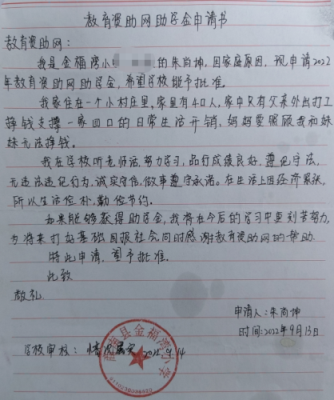 教育资助网助学金申请书
教育资助网：
我是金福湾小 的朱尚坤，因家庭原因，现申请2022
年教育资助网助学金，希望学校能予批准。
我家住在一个小村庄里，家里有4口人，家中只有父亲外出打工
挣钱支撑一家四口的日常生活开销，妈妈要照顾我和妹
妹无法挣钱。
我在学校听老师话，努力学习，品行成绩良好，遵纪守法，
无违法违纪行为，诚实守信，做事遵守承诺。在生活上因经济紧张，
所以生活俭朴，勤俭节约。
如果能够获得助学金，我将在今后的学习中更刻苦努力，
为将来打好基础回报社会同时感谢教育资助网的帮助
特此申请，望予批准。
此致
敬礼
申请人：朱尚坤
时间：2022年9月13日
学校审核：情况属实 9.14
县金福湾小学